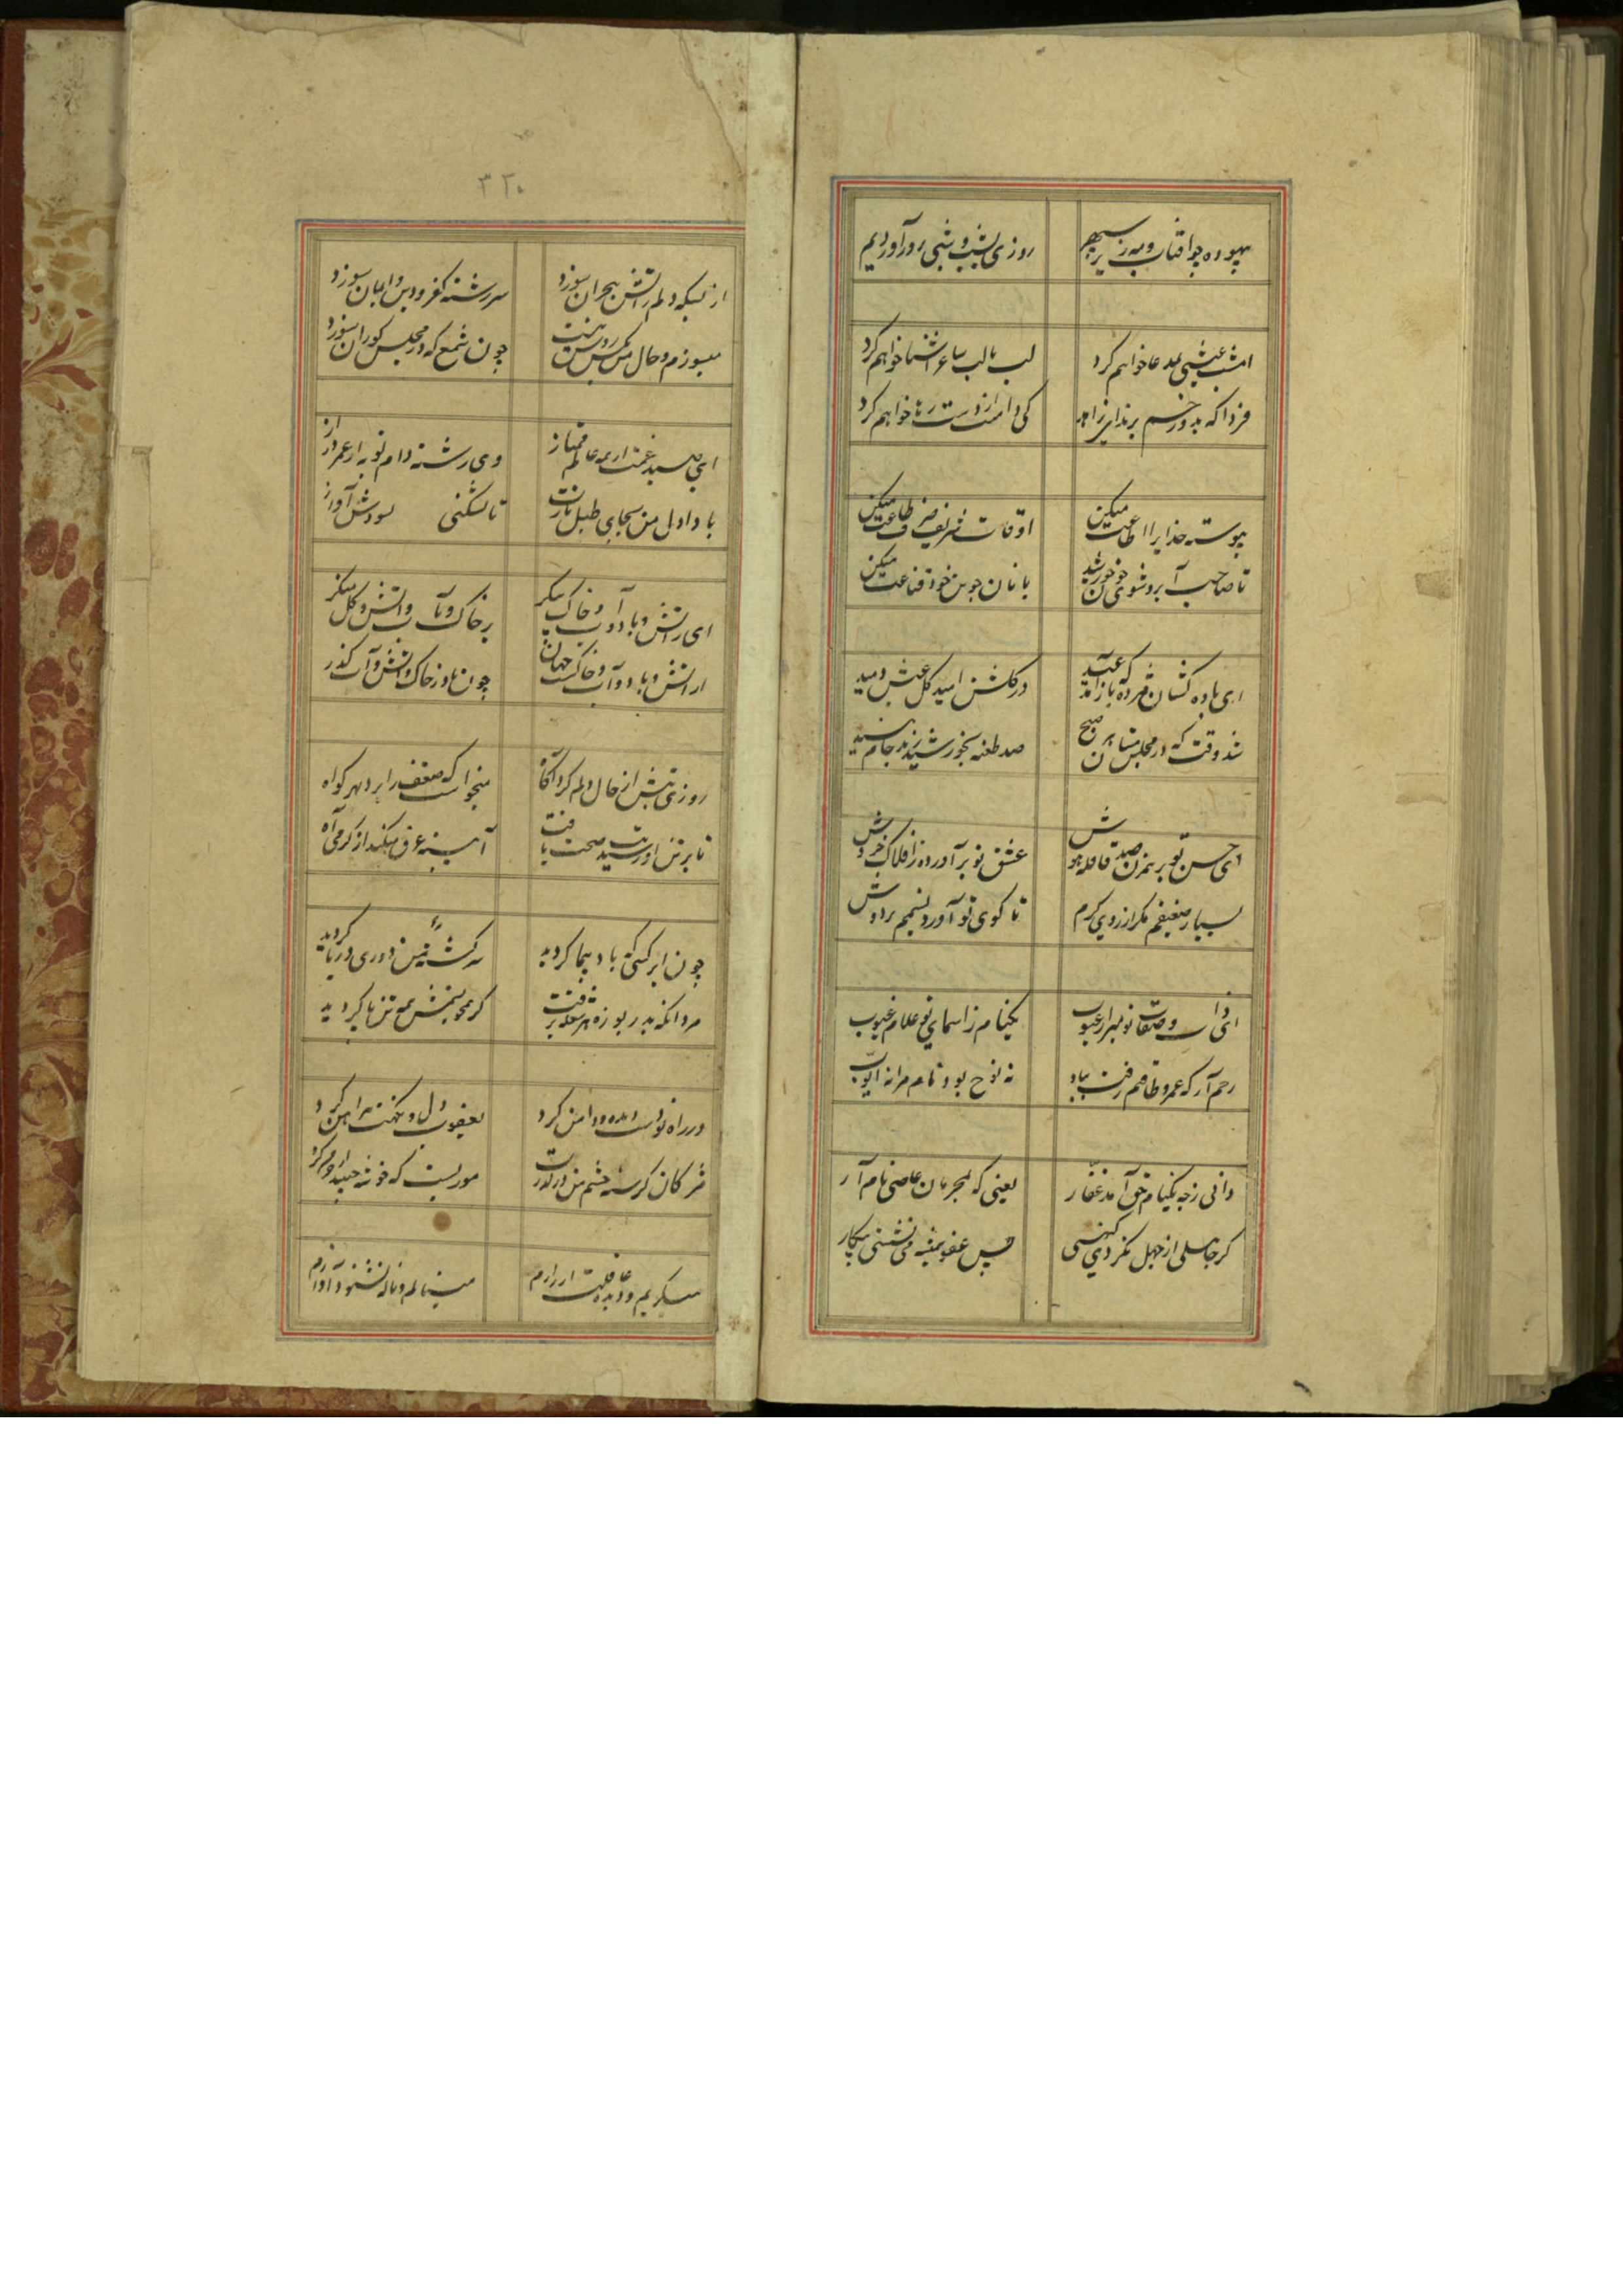 بیهوده چو آفتاب و مه زیر سپهر
روزی بشب و شبی بروز آوردیم
امشب عیشی بمدعا خواهم کرد
لب بالب ساغر آشنا خواهم کرد
فردا که بدوزخم برند ای زاهد
کی دامنت از دست رها خواهم کرد
پیوسته خدایرا اطاعت میکن
اوقات شریف صرف طاعت میکن
تا صاحب آبرو شوی چون خورشید
با نان جوین خود قناعت میکن
ای باده کشان مژده که عید باز آمد
در گلشن امید گل عیش دمید
شد وقت که در مجلس مستان هر صبح
صد طعنه بخورشید زند جام نبید
ای حسن تو برهمزن صد قافله هوش
عشق تو برآورده ز افلاک خروش
بسیار ضعیفم مگر از روی کرم
تا کوی تو آورد نسیمم بر دوش
ای ذات و صفات تو مبرا ز عیوب
یکنام ز اسمای تو علام غیوب
رحم آر که عمر و طاقتم رفت بباد
نه نوح بود نام مرا نه ایوب
دانی ز چه یکنام حق آمد غفار
یعنی که بمجرمان عاصی نام آر
گر جاهلی از جهل نکردی گنهی
پس عفو همیشه می نشستی بیکار
۳۲۰
از بسکه دلم ز آتش هجران سوزد
سررشته کفر و دین و ایمان سوزد
میسوزم و حال من بکس روشن نیست
چون شمع که در مجلس کوران سوزد
ای صید غمت از همه عالم ممتاز
وی رشته دام تو به از عمر دراز
با داد دل من بجای طبل بازت
تا نشکنی نشودش آواز
ای ز آتش و باد و آب و خاک پیکر
بر خاک و آب و آتش و گل منگر
از آتش و باد و آب و خاکست جهان
چون باد ز خاک و آتش و آب گذر
روزی تبش از حال دلم کرد آگاه
میخواست که ضعف را برد بهر گواه
تا بر تن او رسید صحت یافت
آیینه عرق میکند از گرمی آه
چون ابر کسی که باد پیما گردید
سرگشته دوری دریا گردید
مردانکه بدریوزه هر شعله نرفت
گر محو بخش همه تن پا گردید
در راه تو دست داده و دامن کرد
یعقوب دل و نکهت پیراهن کرد
مژگان گرسنه چشم من در گذرت
موریست که خوشه چید و خرمن کرد
میگریم و دیده عاقبت آزارم
مینالم و ناله نشنود آوازم